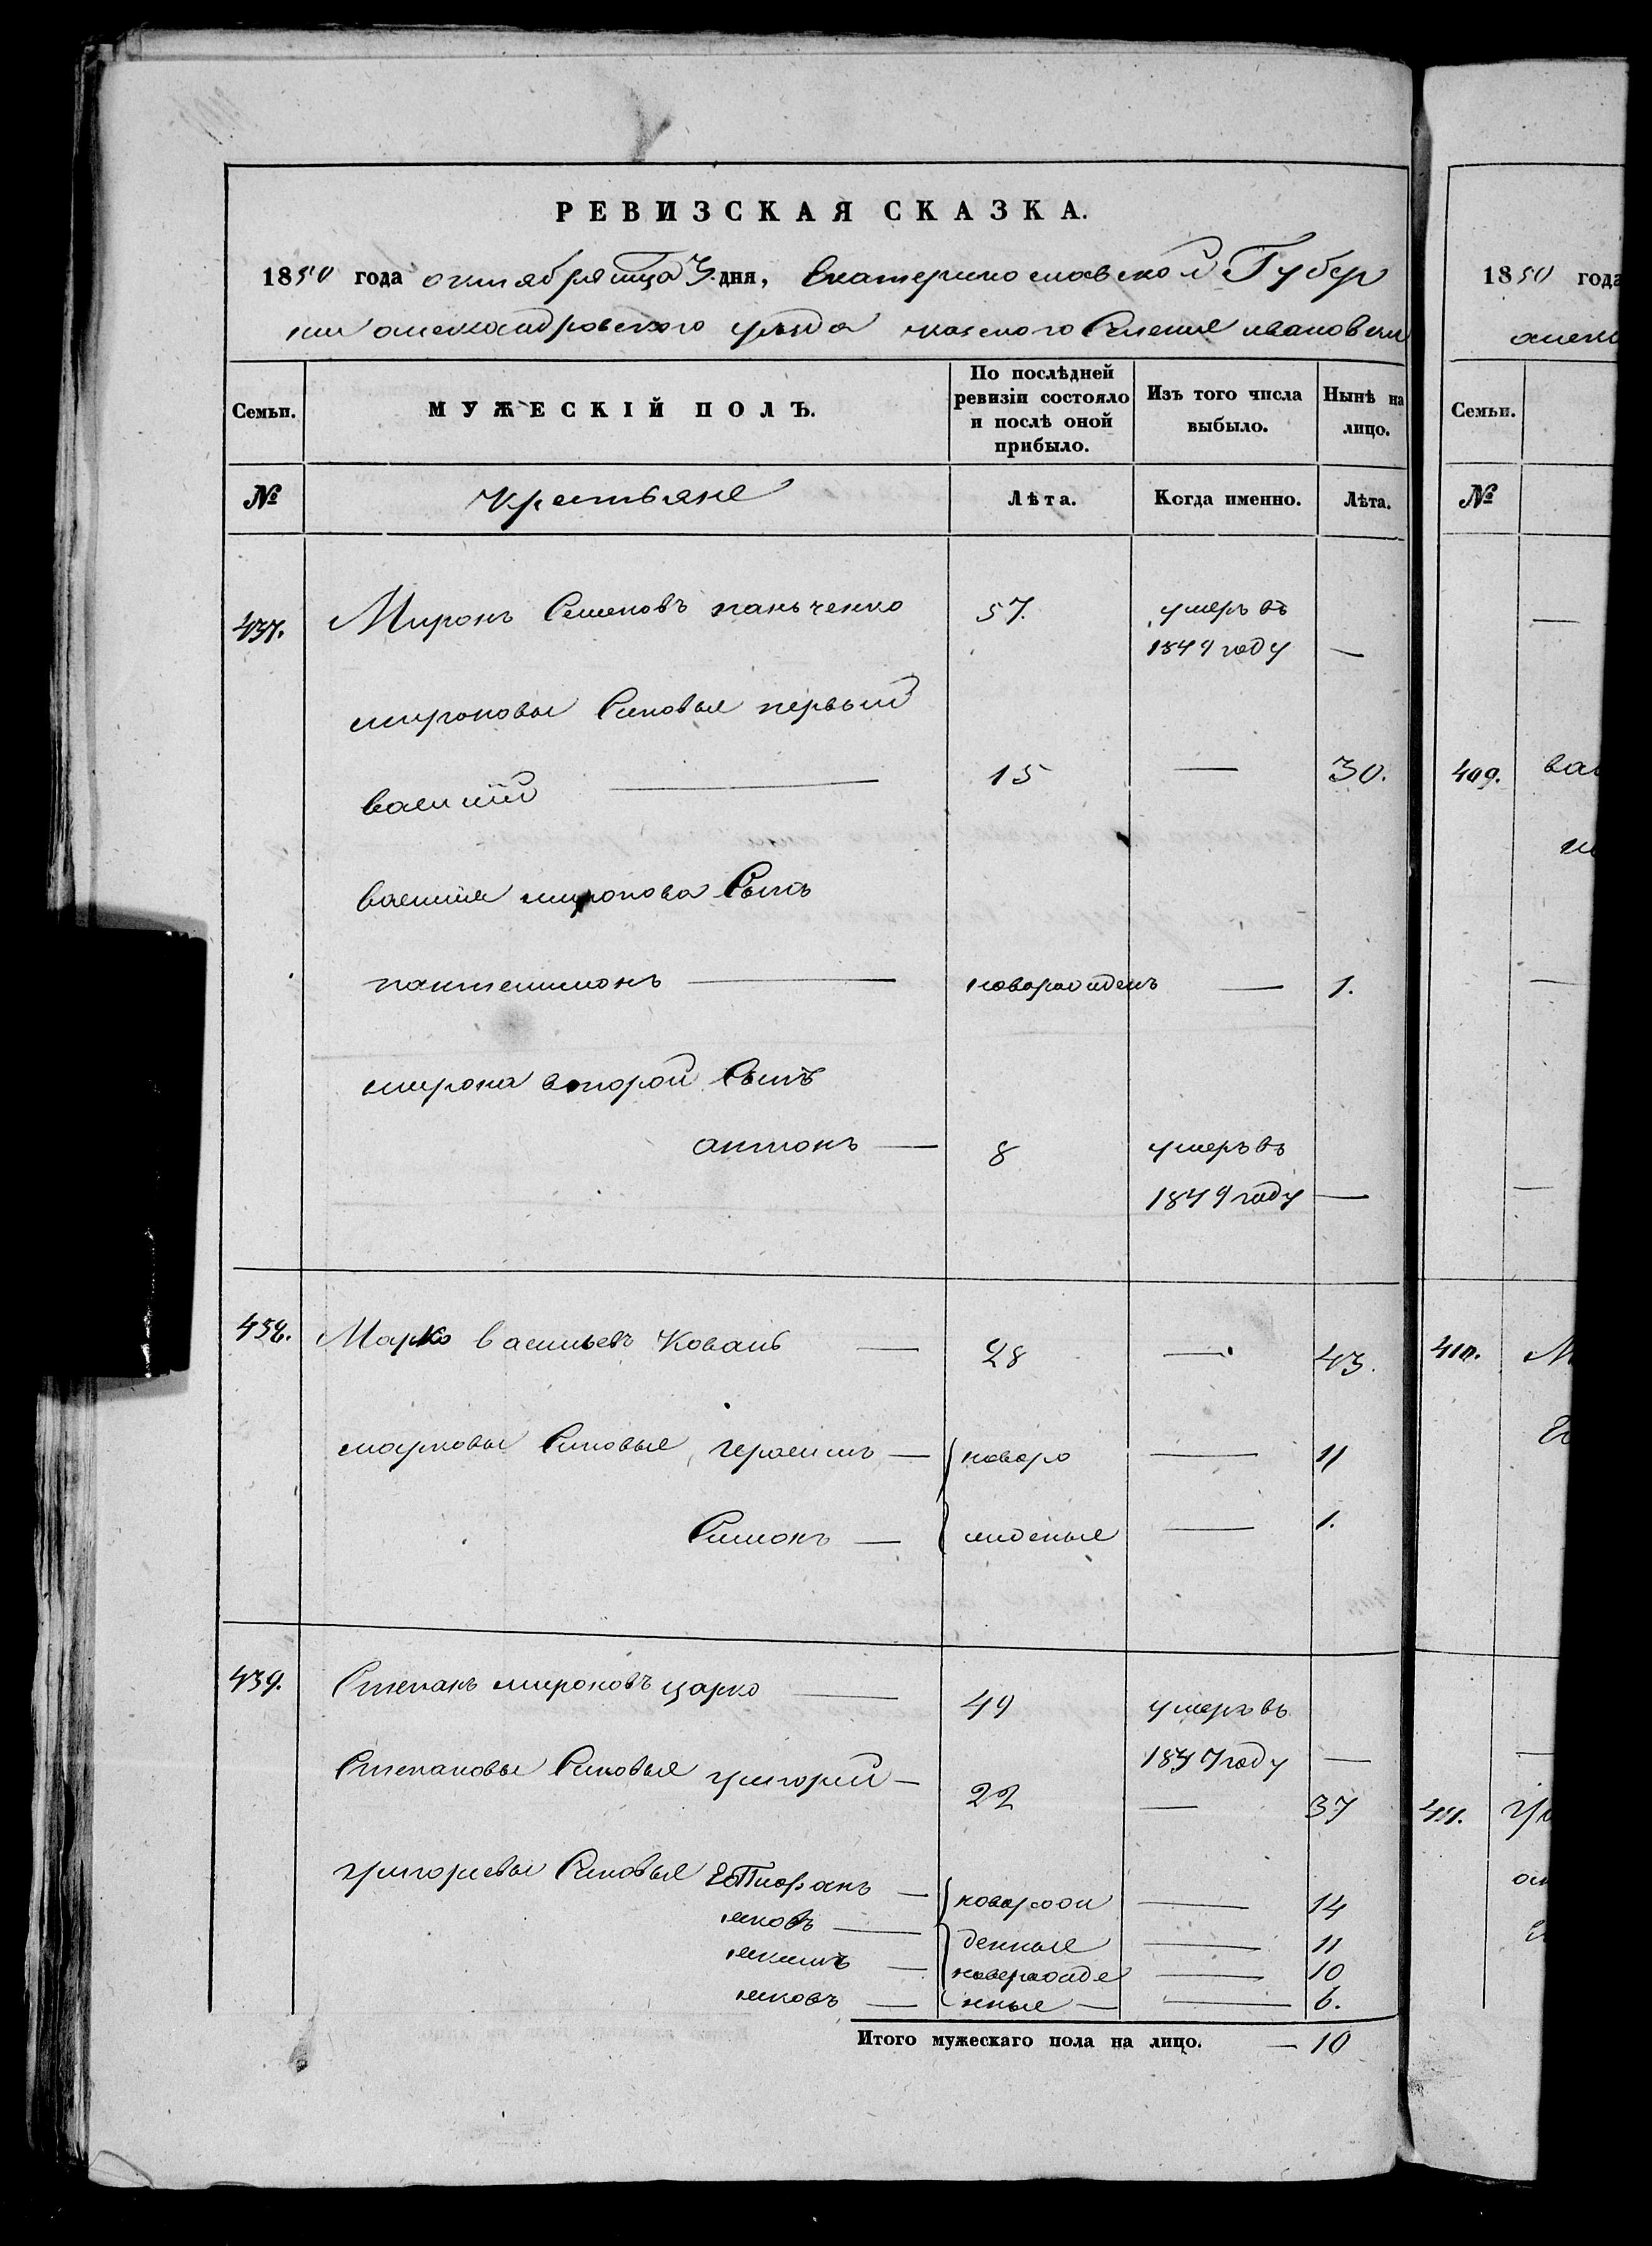 РЕВИЗСКАЯ СКАЗКА.
1850 года октября мца 3 дня, Екатеринославской Губер
нии александровского уезда казеного Селения ивановки
Семьи.
МУЖЕСКІЙ ПОЛЪ.
По послѣдней
ревизіи состояло
и послѣ оной
прибыло.
Изъ того числа
выбыло.
Нынѣ на
лицо.
№
Крестьяне
Лѣта.
Когда именно.
Лѣта.
437. Миронъ Семеновъ паньченко 57. умеръ въ
1849 году —
мироновы Синовья первый
василий — 15 — 30.
василия миронова Сынъ
пантелимонъ — новорожденъ — 1.
мирона второй Сынъ
антонъ — 8 умеръ въ
1849 году —
438. Марко васильевъ Коваль — 28 — 43.
марковы Синовья, герасимъ — новоро — 11
Симонъ — жденые — 1.
439. Степанъ мироновъ царко — 49 умеръ въ
1847 году —
Степановы Синовья григорий — 22 — 37
григориевы Синовья — новорож — 14
яковъ — денные — 11
якимъ — новорожде — 10
яковъ — нные — — 6.
Итого мужескаго пола на лицо. — 10
1850 года
алекс
Семьи.
№
409. вас
410. М
411. гр